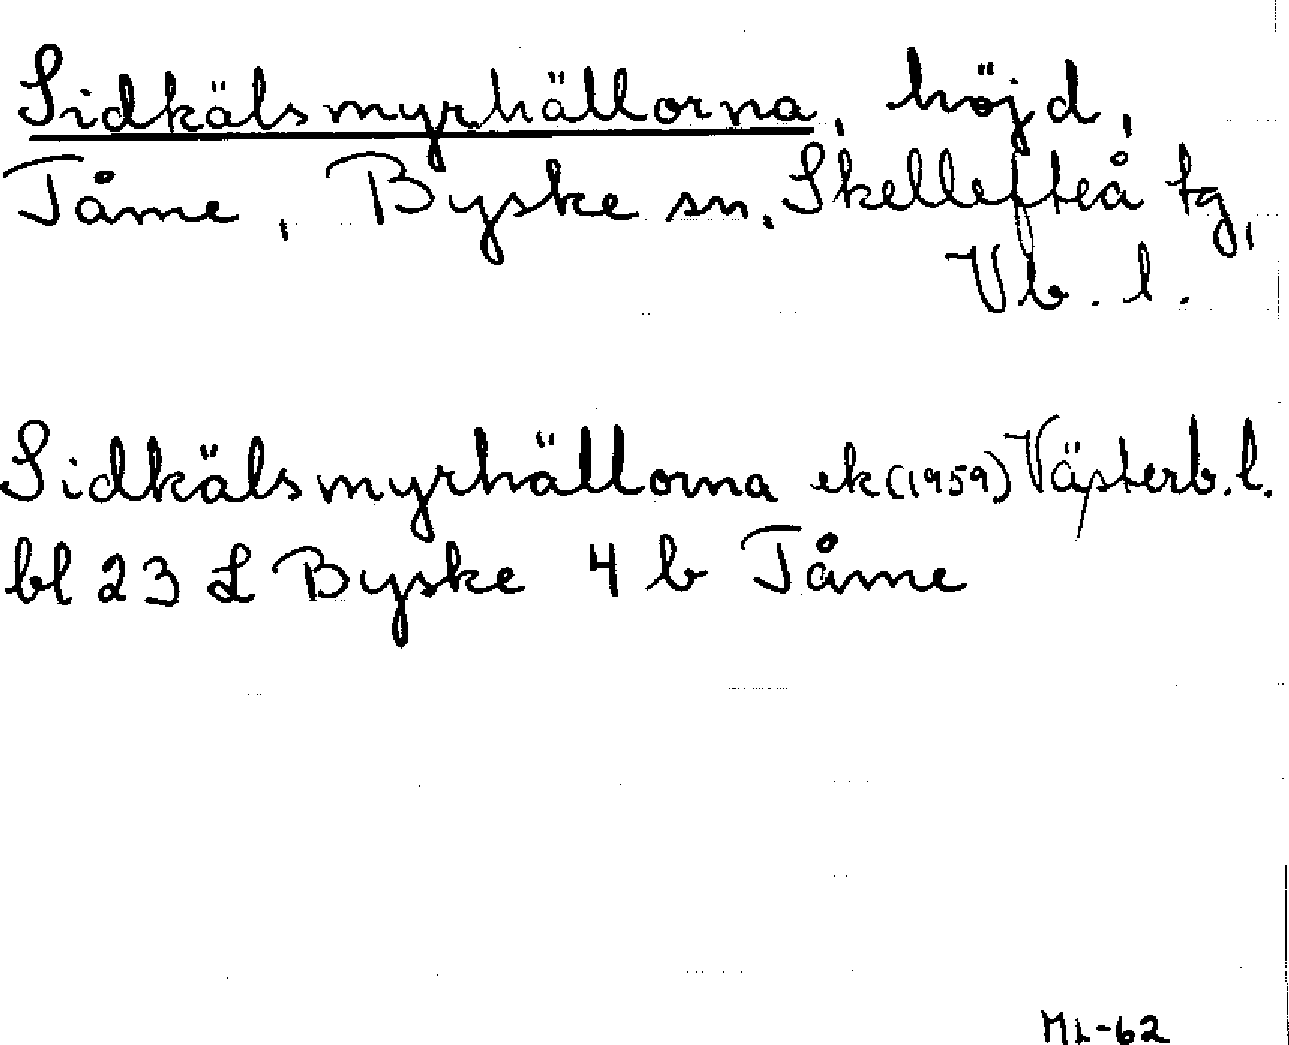 Sidkälsmyrhällorna, höjd,
Tåme, Byske sn. Skellefteå tg,
Vb. l.
Sidkälsmyrhällorna ek (1959) Västerb. l.
bl 23 L Byske 4 b Tåme
ML-62